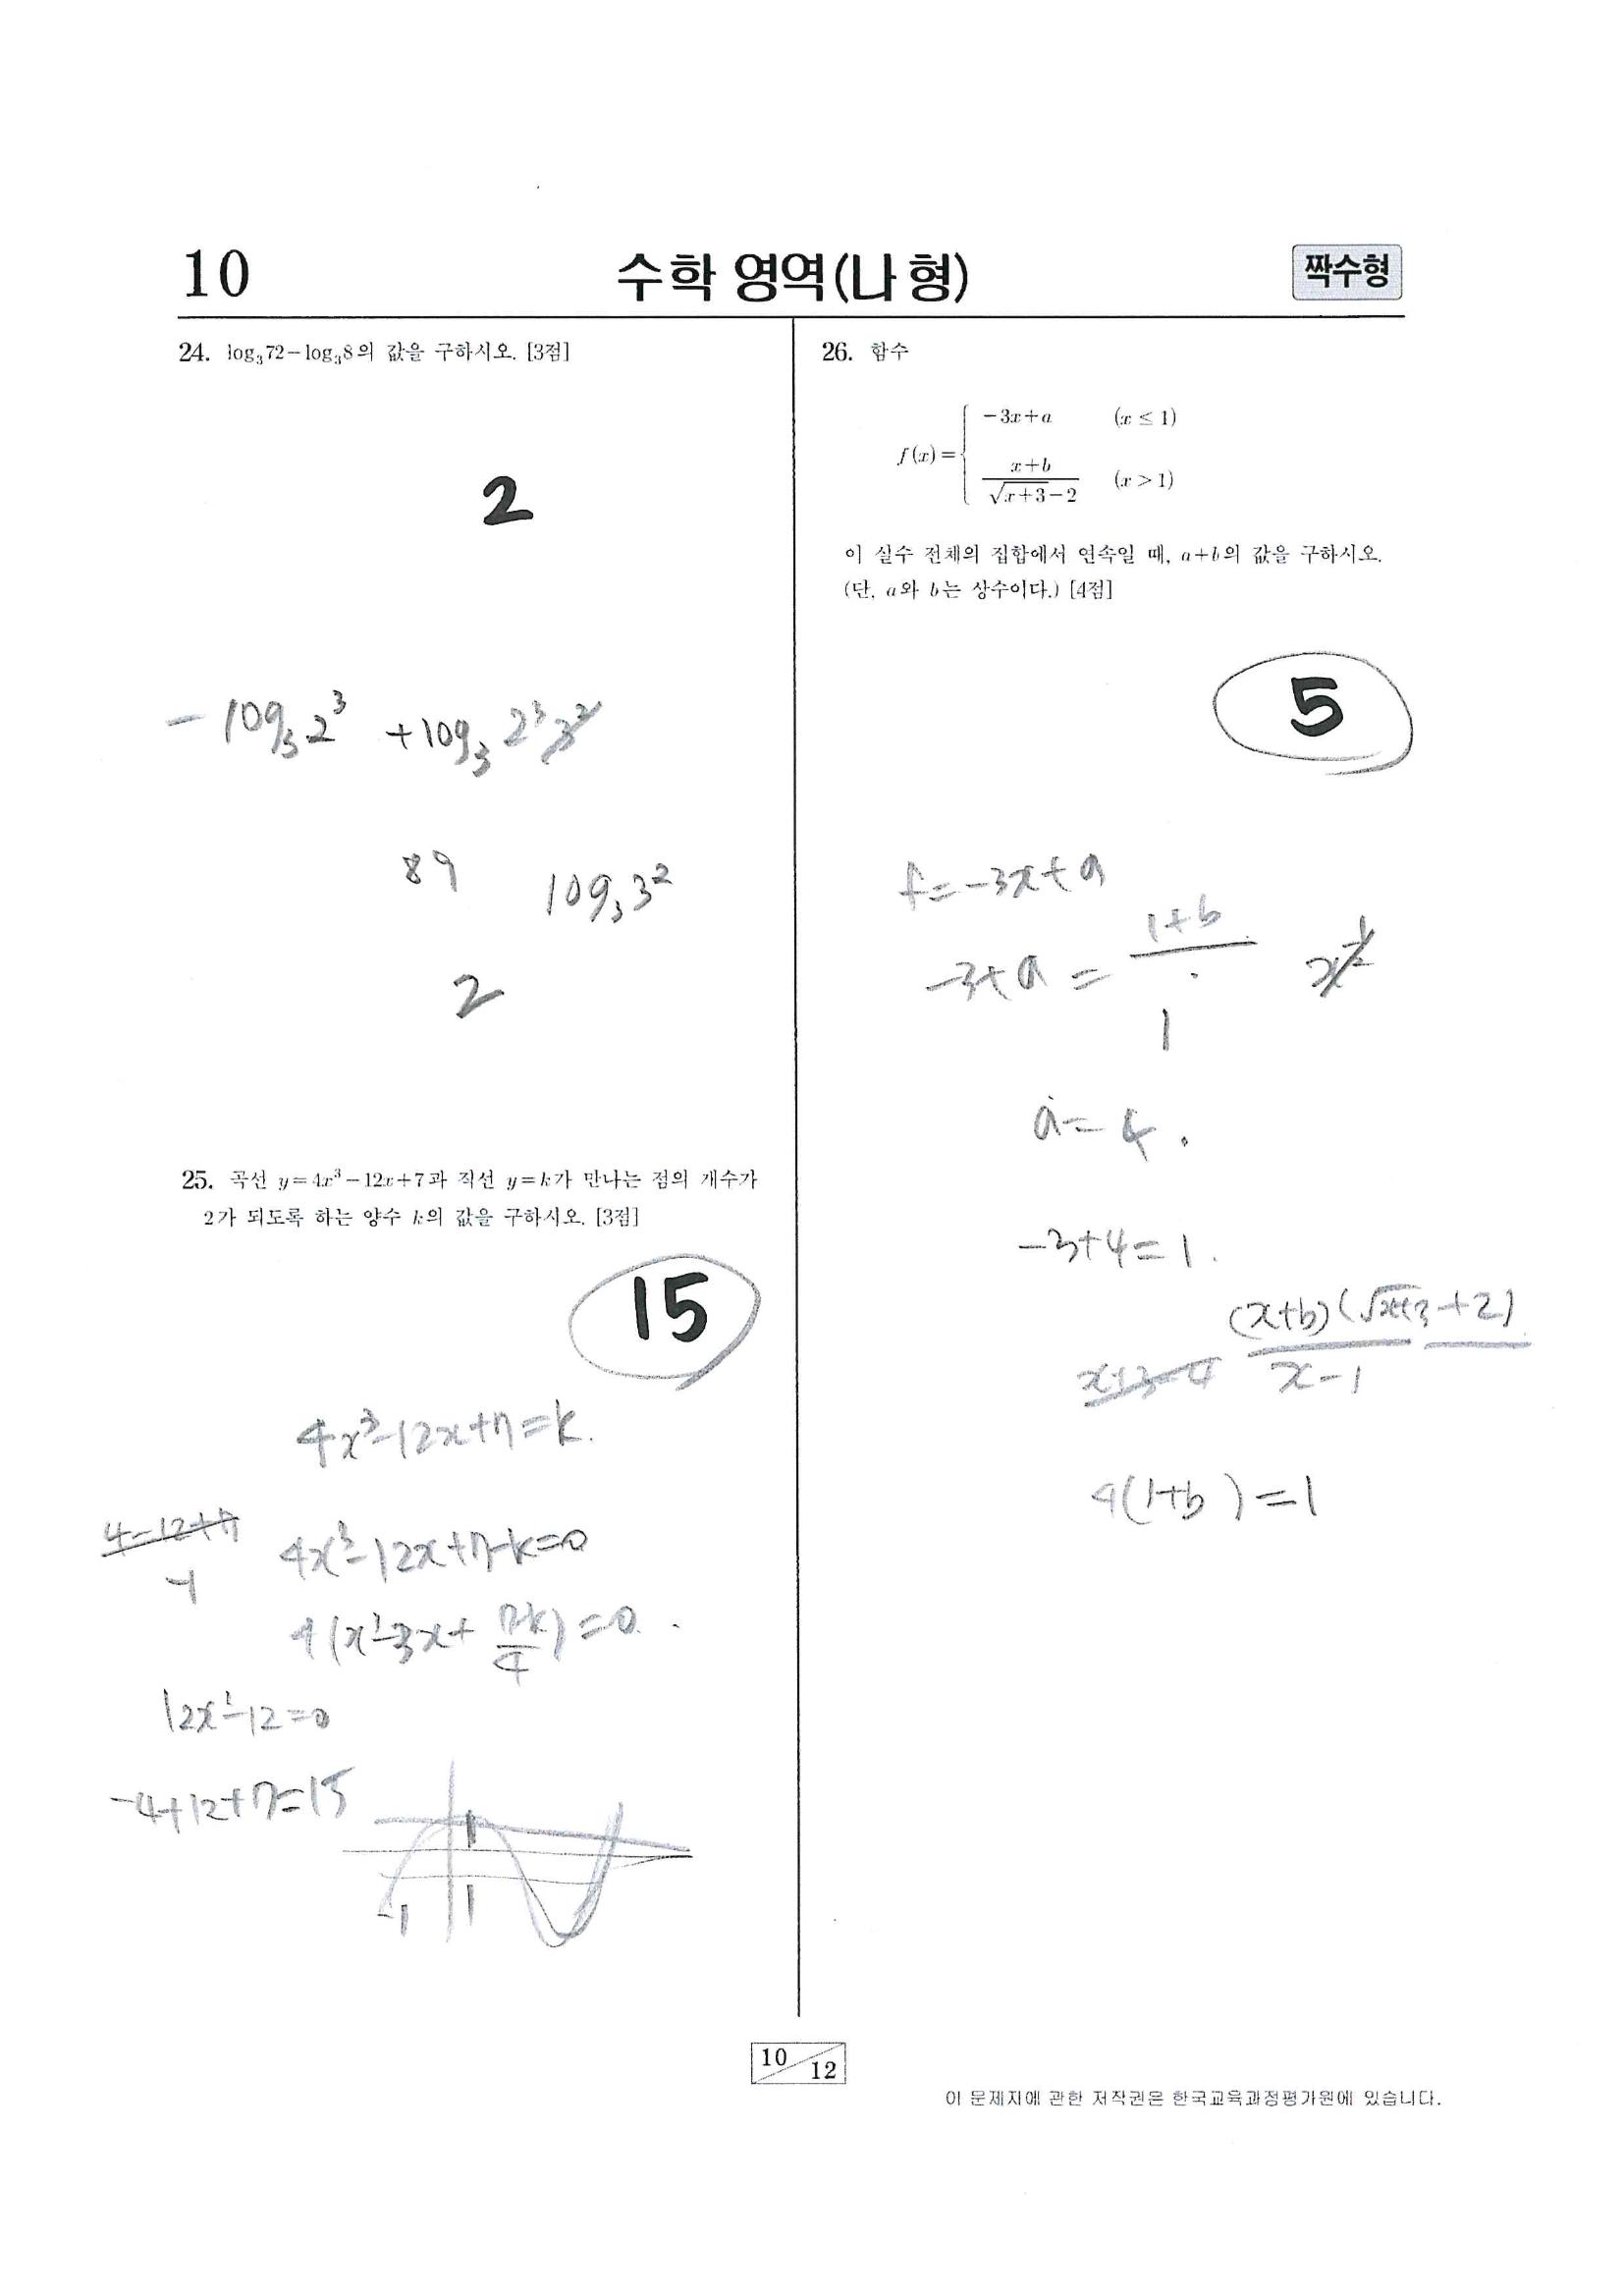 10
수학 영역(나 형)
짝수형
24. log₃72-log₃8의 값을 구하시오. [3점]
2
- log₃2³ +log₃ 2³3²
89
log₃3²
2
25. 곡선 y=4x³-12x+7과 직선 y=k가 만나는 점의 개수가
2가 되도록 하는 양수 k의 값을 구하시오. [3점]
15
4x³-12x+7=k.
4-12+7
-1
4x³-12x+7-k=0
4(x³-3x+ (7-k)/4)=0.
12x²-12=0
-4+12+7=15
-1
1
26. 함수
f(x)=
-3x+a (x ≤ 1)
(x+b)/(√(x+3)-2) (x > 1)
이 실수 전체의 집합에서 연속일 때, a+b의 값을 구하시오.
(단, a와 b는 상수이다.) [4점]
5
f=-3x+a
-3+a = 1+b
1
a=4.
-3+4=1.
(x+b)(√(x+3)+2)
x+3-4
x-1
4(1+b)=1
10
12
이 문제지에 관한 저작권은 한국교육과정평가원에 있습니다.